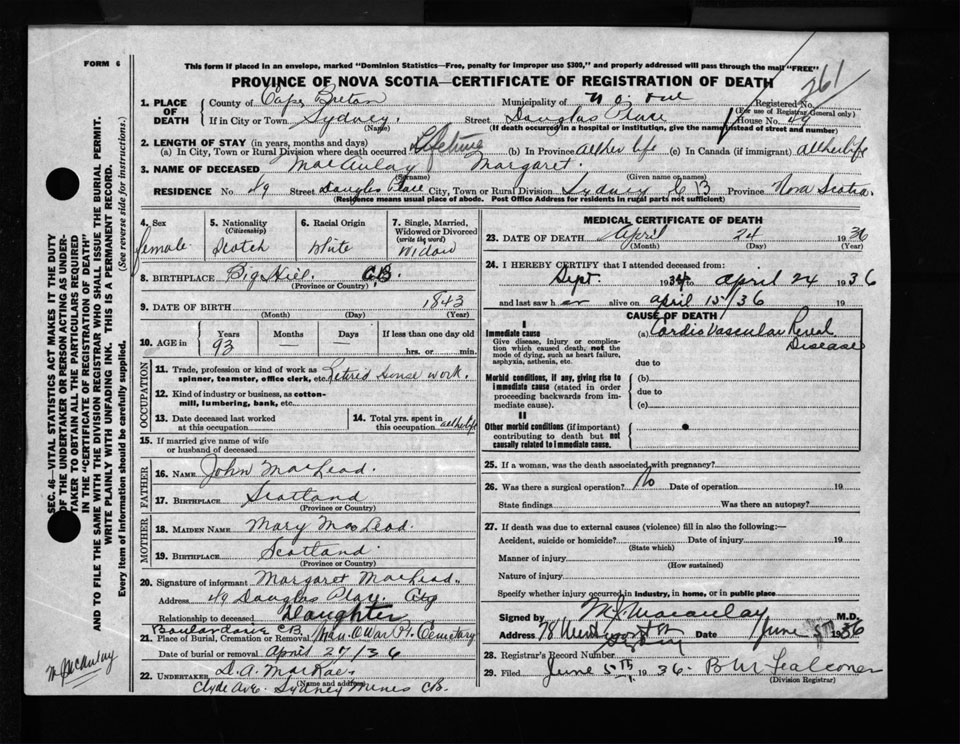 FORM 6
This form if placed in an envelope, marked "Dominion Statistics—Free, penalty for improper use $300," and properly addressed will pass through the mail "FREE"
PROVINCE OF NOVA SCOTIA—CERTIFICATE OF REGISTRATION OF DEATH
261
1. PLACE OF DEATH { County of Cape Breton Municipality of Registered No.
(For use of Registrar General only)
If in City or Town Sydney. Street Douglas Place House No. 49
(Name) (If death occurred in a hospital or institution, give the name instead of street and number)
2. LENGTH OF STAY (in years, months and days)
(a) In City, Town or Rural Division where death occurred Lifetime (b) In Province all her life (c) In Canada (if immigrant) all her life
3. NAME OF DECEASED MacAulay Margaret.
(Surname) (Given name or names)
RESIDENCE No. 49 Street Douglas Place City, Town or Rural Division Sydney C B Province Nova Scotia.
(Residence means usual place of abode. Post Office Address for residents in rural parts not sufficient)
4. Sex female
5. Nationality (Citizenship) Scotch
6. Racial Origin White
7. Single, Married, Widowed or Divorced (write the word) Widow
8. BIRTHPLACE Big Hill. C.B.
(Province or Country)
9. DATE OF BIRTH 1843
(Month) (Day) (Year)
10. AGE in Years 93 Months — Days — If less than one day old hrs. or min.
OCCUPATION
11. Trade, profession or kind of work as spinner, teamster, office clerk, etc. Retired house work.
12. Kind of industry or business, as cotton-mill, lumbering, bank, etc.
13. Date deceased last worked at this occupation
14. Total yrs. spent in this occupation all her life
15. If married give name of wife or husband of deceased
FATHER
16. NAME John MacLeod.
17. BIRTHPLACE Scotland
(Province or Country)
MOTHER
18. MAIDEN NAME Mary MacLeod.
19. BIRTHPLACE Scotland.
(Province or Country)
20. Signature of informant Margaret MacLeod.
Address 49 Douglas Place. City
Relationship to deceased Daughter
Boularderie CB.
21. Place of Burial, Cremation or Removal Man O War Pt. Cemetary
Date of burial or removal April 27/36
22. UNDERTAKER D.A. MacRae.
(Name and address)
Clyde Ave. Sydney Mines CB.
MEDICAL CERTIFICATE OF DEATH
23. DATE OF DEATH April 24 1936
(Month) (Day) (Year)
24. I HEREBY CERTIFY that I attended deceased from:
Sept. 1934 to April 24 1936
and last saw her alive on April 15/36 19
CAUSE OF DEATH
I
Immediate cause
Give disease, injury or complication which caused death, not the mode of dying, such as heart failure, asphyxia, asthenia, etc.
(a) Cardio Vascular Renal Disease
due to
Morbid conditions, if any, giving rise to immediate cause (stated in order proceeding backwards from immediate cause).
(b)
due to
(c)
II
Other morbid conditions (if important) contributing to death but not causally related to immediate cause.
25. If a woman, was the death associated with pregnancy?
26. Was there a surgical operation? No Date of operation 19
State findings Was there an autopsy?
27. If death was due to external causes (violence) fill in also the following:—
Accident, suicide or homicide? Date of injury 19
(State which)
Manner of injury
(How sustained)
Nature of injury
Specify whether injury occurred in industry, in home, or in public place
Signed by M. J. Macaulay M.D.
Address 78 Date June 5th 1936
28. Registrar's Record Number
29. Filed June 5th 1936. B W Falconer
(Division Registrar)
SEC. 46—VITAL STATISTICS ACT MAKES IT THE DUTY
OF THE UNDERTAKER OR PERSON ACTING AS UNDER-
TAKER TO OBTAIN ALL THE PARTICULARS REQUIRED
IN THE "CERTIFICATE OF REGISTRATION OF DEATH"
AND TO FILE THE SAME WITH THE DIVISION REGISTRAR WHO SHALL ISSUE THE BURIAL PERMIT.
WRITE PLAINLY WITH UNFADING INK. THIS IS A PERMANENT RECORD.
Every item of information should be carefully supplied. (See reverse side for instructions.)